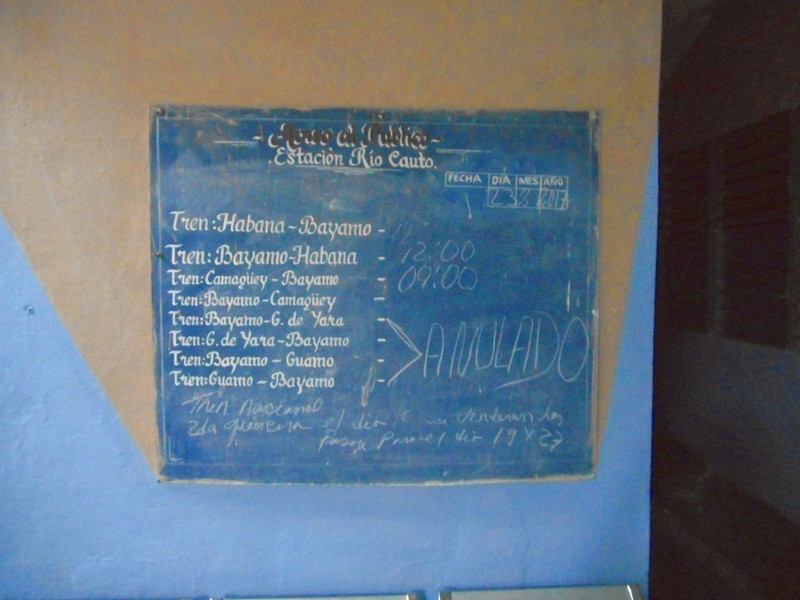 - Aviso al Público -
Estación Río Cauto.
FECHA DIA MES AÑO
23 2017
Tren: Habana - Bayamo -
Tren: Bayamo - Habana - 12:00
Tren: Camagüey - Bayamo - 09:00
Tren: Bayamo - Camagüey -
Tren: Bayamo - G. de Yara -
Tren: G. de Yara - Bayamo -
Tren: Bayamo - Guamo -
Tren: Guamo - Bayamo -
ANULADO
Tren Nacional
2da quincena el dia se venderan los
pasaje para el dia 19 y 27